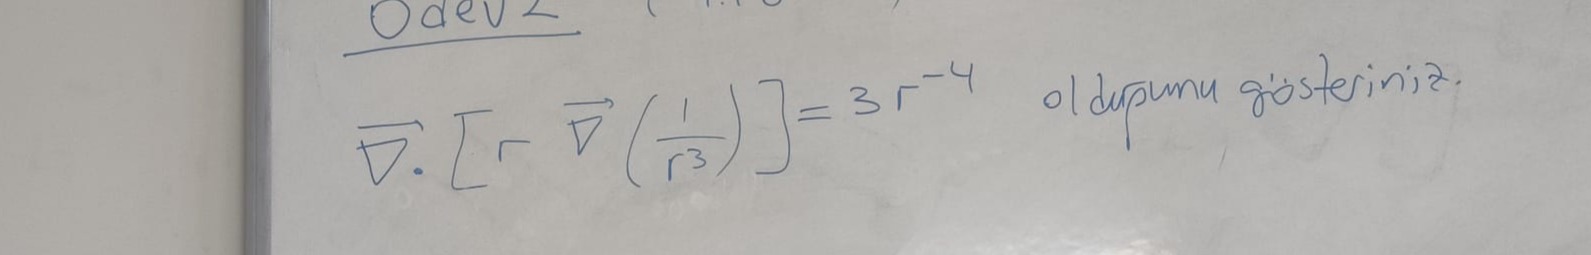 Ödev 2
∇⃗.[r ∇⃗(1/r³)] = 3r⁻⁴ olduğunu gösteriniz.